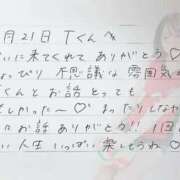 月21日 Tくんへ
いに来てくれて ありがとう♡
ょっぴり 不思議な 雰囲気
くんと お話 とっても
しかった〜♡ まったりしなが
にお話 ありがとう!! 1回
い 人生 いっぱい 楽しもうね♡